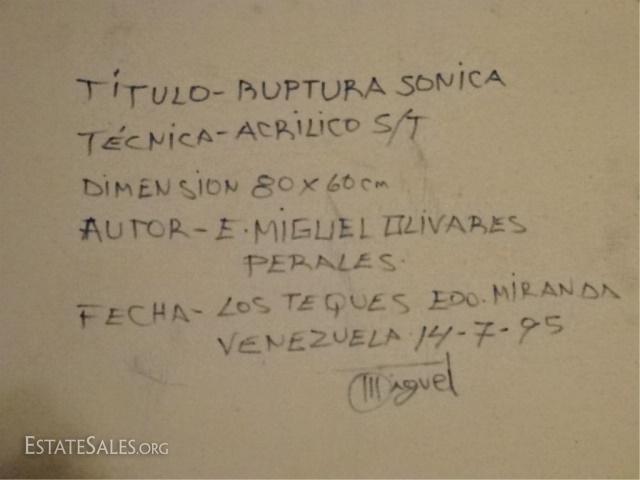 TÍTULO- RUPTURA SONICA
TÉCNICA- ACRILICO S/T
DIMENSION 80 x 60 cm
AUTOR- E. MIGUEL OLIVARES
PERALES.
FECHA- LOS TEQUES EDO. MIRANDA
VENEZUELA. 14-7-95
Miguel
ESTATESALES.ORG